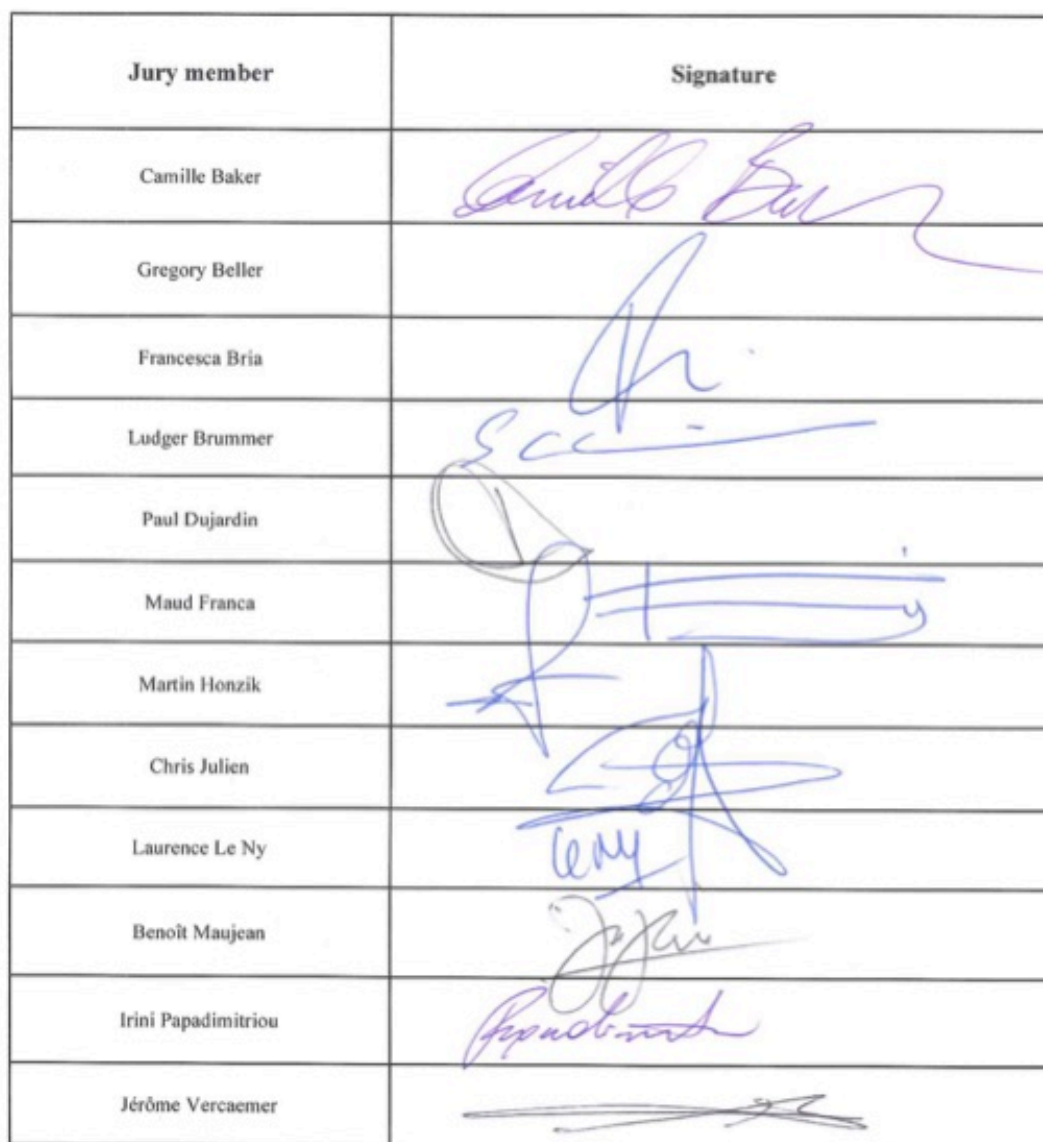 Jury member Signature
Camille Baker Camille Ba
Gregory Beller
Francesca Bria
Ludger Brummer
Paul Dujardin
Maud Franca
Martin Honzik
Chris Julien
Laurence Le Ny leny
Benoît Maujean
Irini Papadimitriou
Jérôme Vercaemer